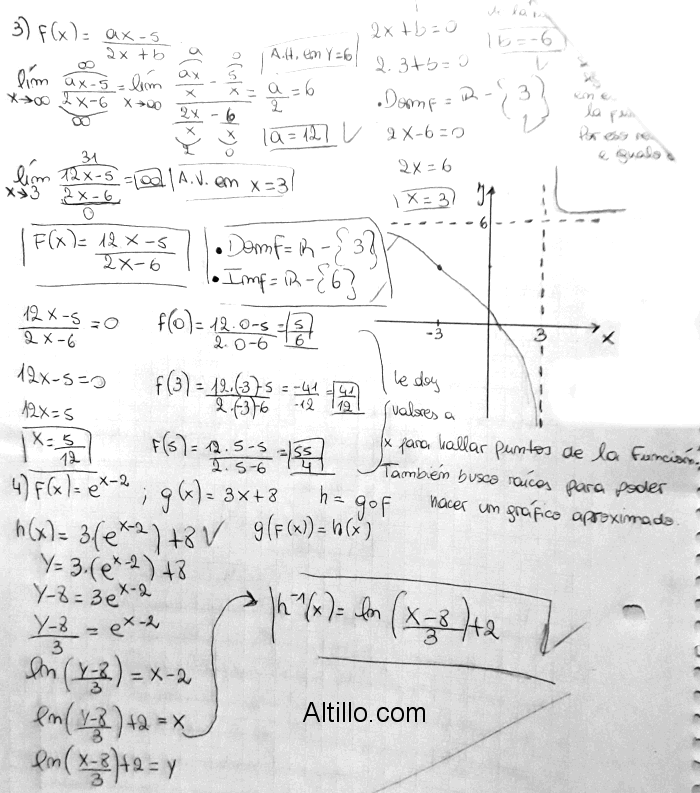 3) F(x) = (ax-5)/(2x+b)
A.H. em y=6
lím x→∞ (ax-5)/(2x-6) = lím x→∞ (ax/x - 5/x)/(2x/x - 6/x) = a/2 = 6
∞ ∞ a 0 2 0
a=12 ✓
2x+b=0
b=-6
2.3+b=0
• Dom f = R - {3}
2x-6=0
2x=6
x=3
la
Por eso
e
lím x→3 (12x-5)/(2x-6) = ∞ A.V. em x=3
31 0
F(x) = (12x-5)/(2x-6)
• Dom f = R - {3}
• Im f = R - {6}
y
6
-3
3
x
(12x-5)/(2x-6) = 0
12x-5=0
12x=5
x = 5/12
f(0) = (12.0-5)/(2.0-6) = 5/6
f(3) = (12.(-3)-5)/(2.(-3)-6) = -41/-12 = 41/12
f(5) = (12.5-5)/(2.5-6) = 55/4
le doy
valores a
x para hallar puntos de la Función.
También busco raíces para poder
hacer um gráfico aproximado.
4) F(x) = e^(x-2) ; g(x) = 3x+8 h = g∘f
h(x) = 3.(e^(x-2)) + 8 ✓ g(F(x)) = h(x)
y = 3.(e^(x-2)) + 8
y-8 = 3e^(x-2)
(y-8)/3 = e^(x-2)
ln((y-8)/3) = x-2
ln((y-8)/3) + 2 = x
ln((x-8)/3) + 2 = y
h^-1(x) = ln((x-8)/3) + 2 ✓
Altillo.com